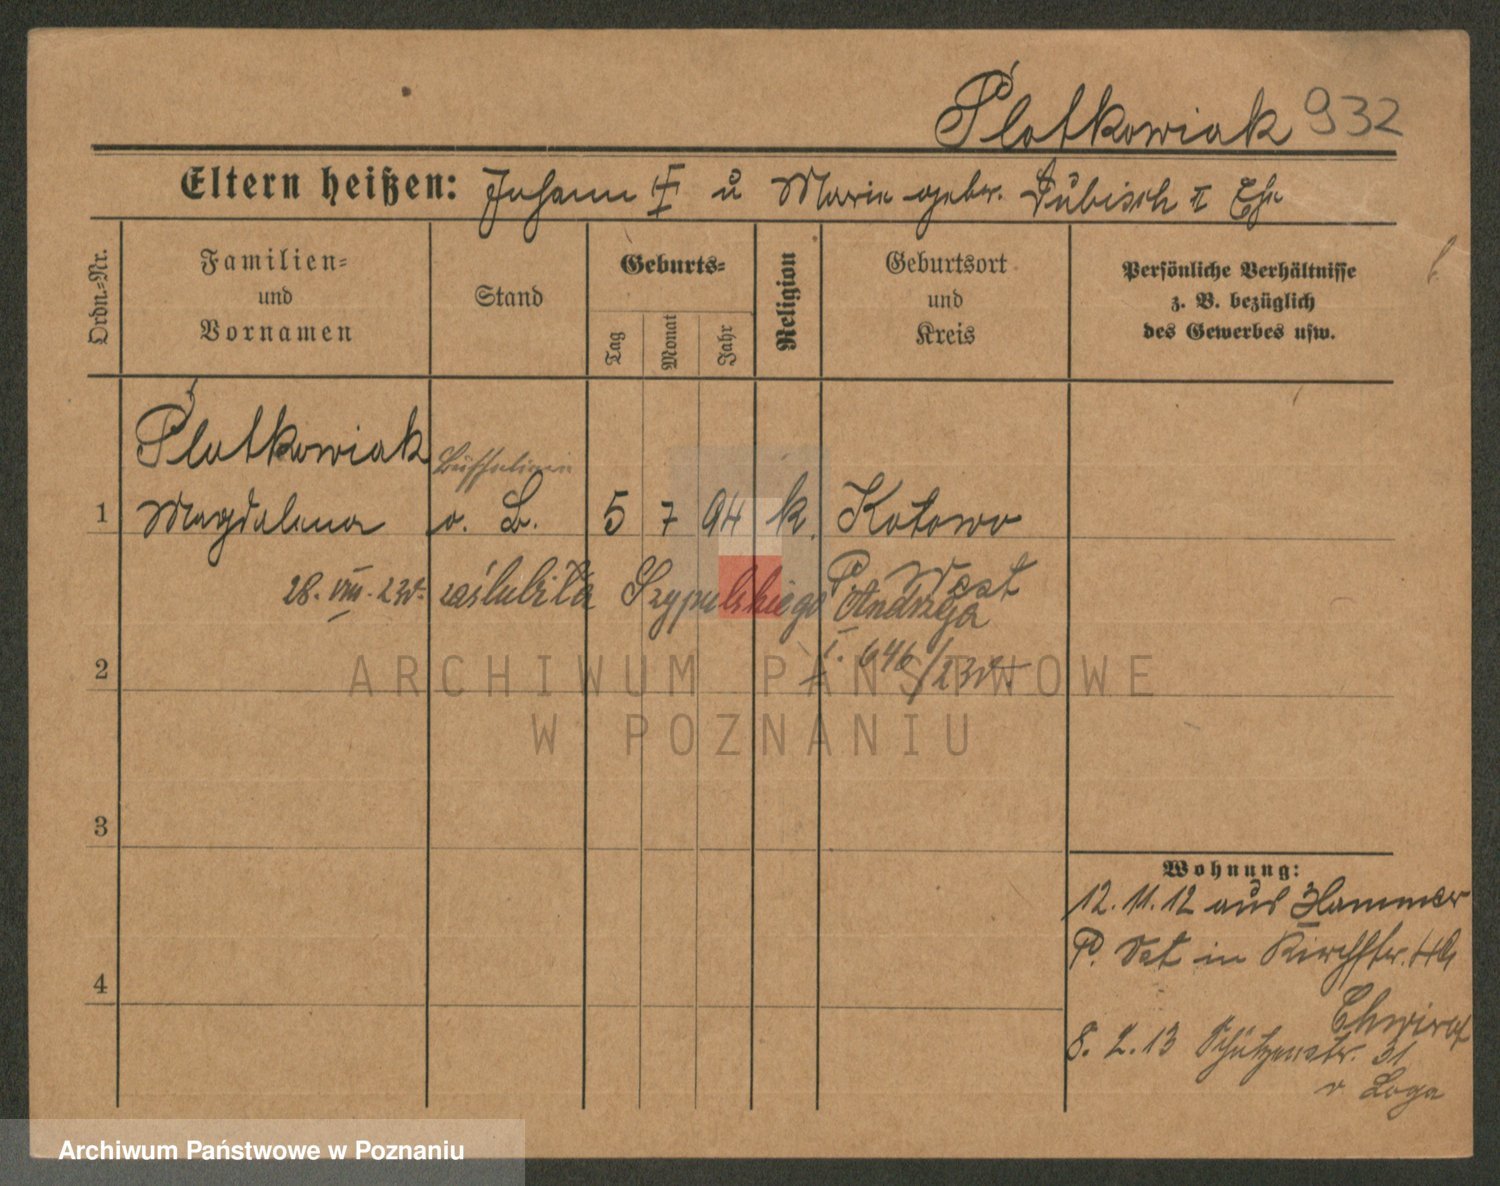 Plotkowiak 932
Eltern heißen: Johann u Marie gebr. Dubisch II Ehe
Ordn.-Nr.
Familien-
und
Vornamen
Stand
Geburts-
Tag
Monat
Jahr
Religion
Geburtsort
und
Kreis
Persönliche Verhältnisse
z. B. bezüglich
des Gewerbes usw.
Plotkowiak
1 Magdalena o. B. 5 7 94 k. Kotowo
P. West
28. VIII. 23r. zaślubiła Szypulskiego Andrzeja
I. 646/23
2
3
4
ARCHIWUM PAŃSTWOWE
W POZNANIU
Wohnung:
12. 11. 12 aus Hammer
P. Ost in Kirchstr.
8. 2. 13 Schützenstr. 31
v Loga
Archiwum Państwowe w Poznaniu